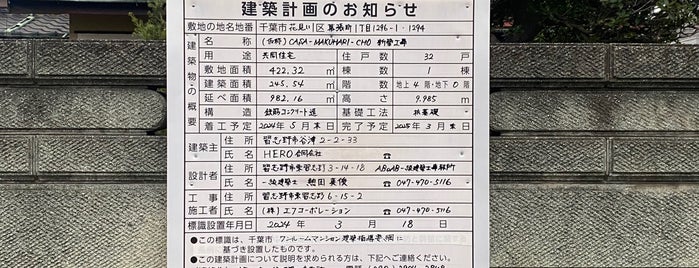 建築計画のお知らせ
敷地の地名地番 千葉市花見川区幕張町1丁目1296-1・1294
建築物の概要
名称 (仮称) CASA-MAKUHARI-CHO 新築工事
用途 共同住宅 住戸数 32 戸
敷地面積 422.32 ㎡ 棟数 1 棟
建築面積 245.54 ㎡ 階数 地上 4 階・地下 0 階
延べ面積 982.16 ㎡ 高さ 9.985 m
構造 鉄筋コンクリート造 基礎工法 杭基礎
着工予定 2024年 5月末日 完了予定 2025年 3月末日
建築主 住所 習志野市谷津 2-2-33
氏名 HERO合同会社 ☎
設計者 住所 習志野市東習志野 3-14-18 一級建築士事務所
氏名 一級建築士 ☎ 047-470-5116
工事施工者 住所 習志野市東習志野 6-15-2
氏名 (株)エフコーポレーション ☎ 047-470-5116
標識設置年月日 2024 年 3 月 18 日
●この標識は、千葉市ワンルームマンション建築指導要綱に
基づき設置したものです。
●この建築計画について説明を求められる方は、下記へご連絡ください。
電話